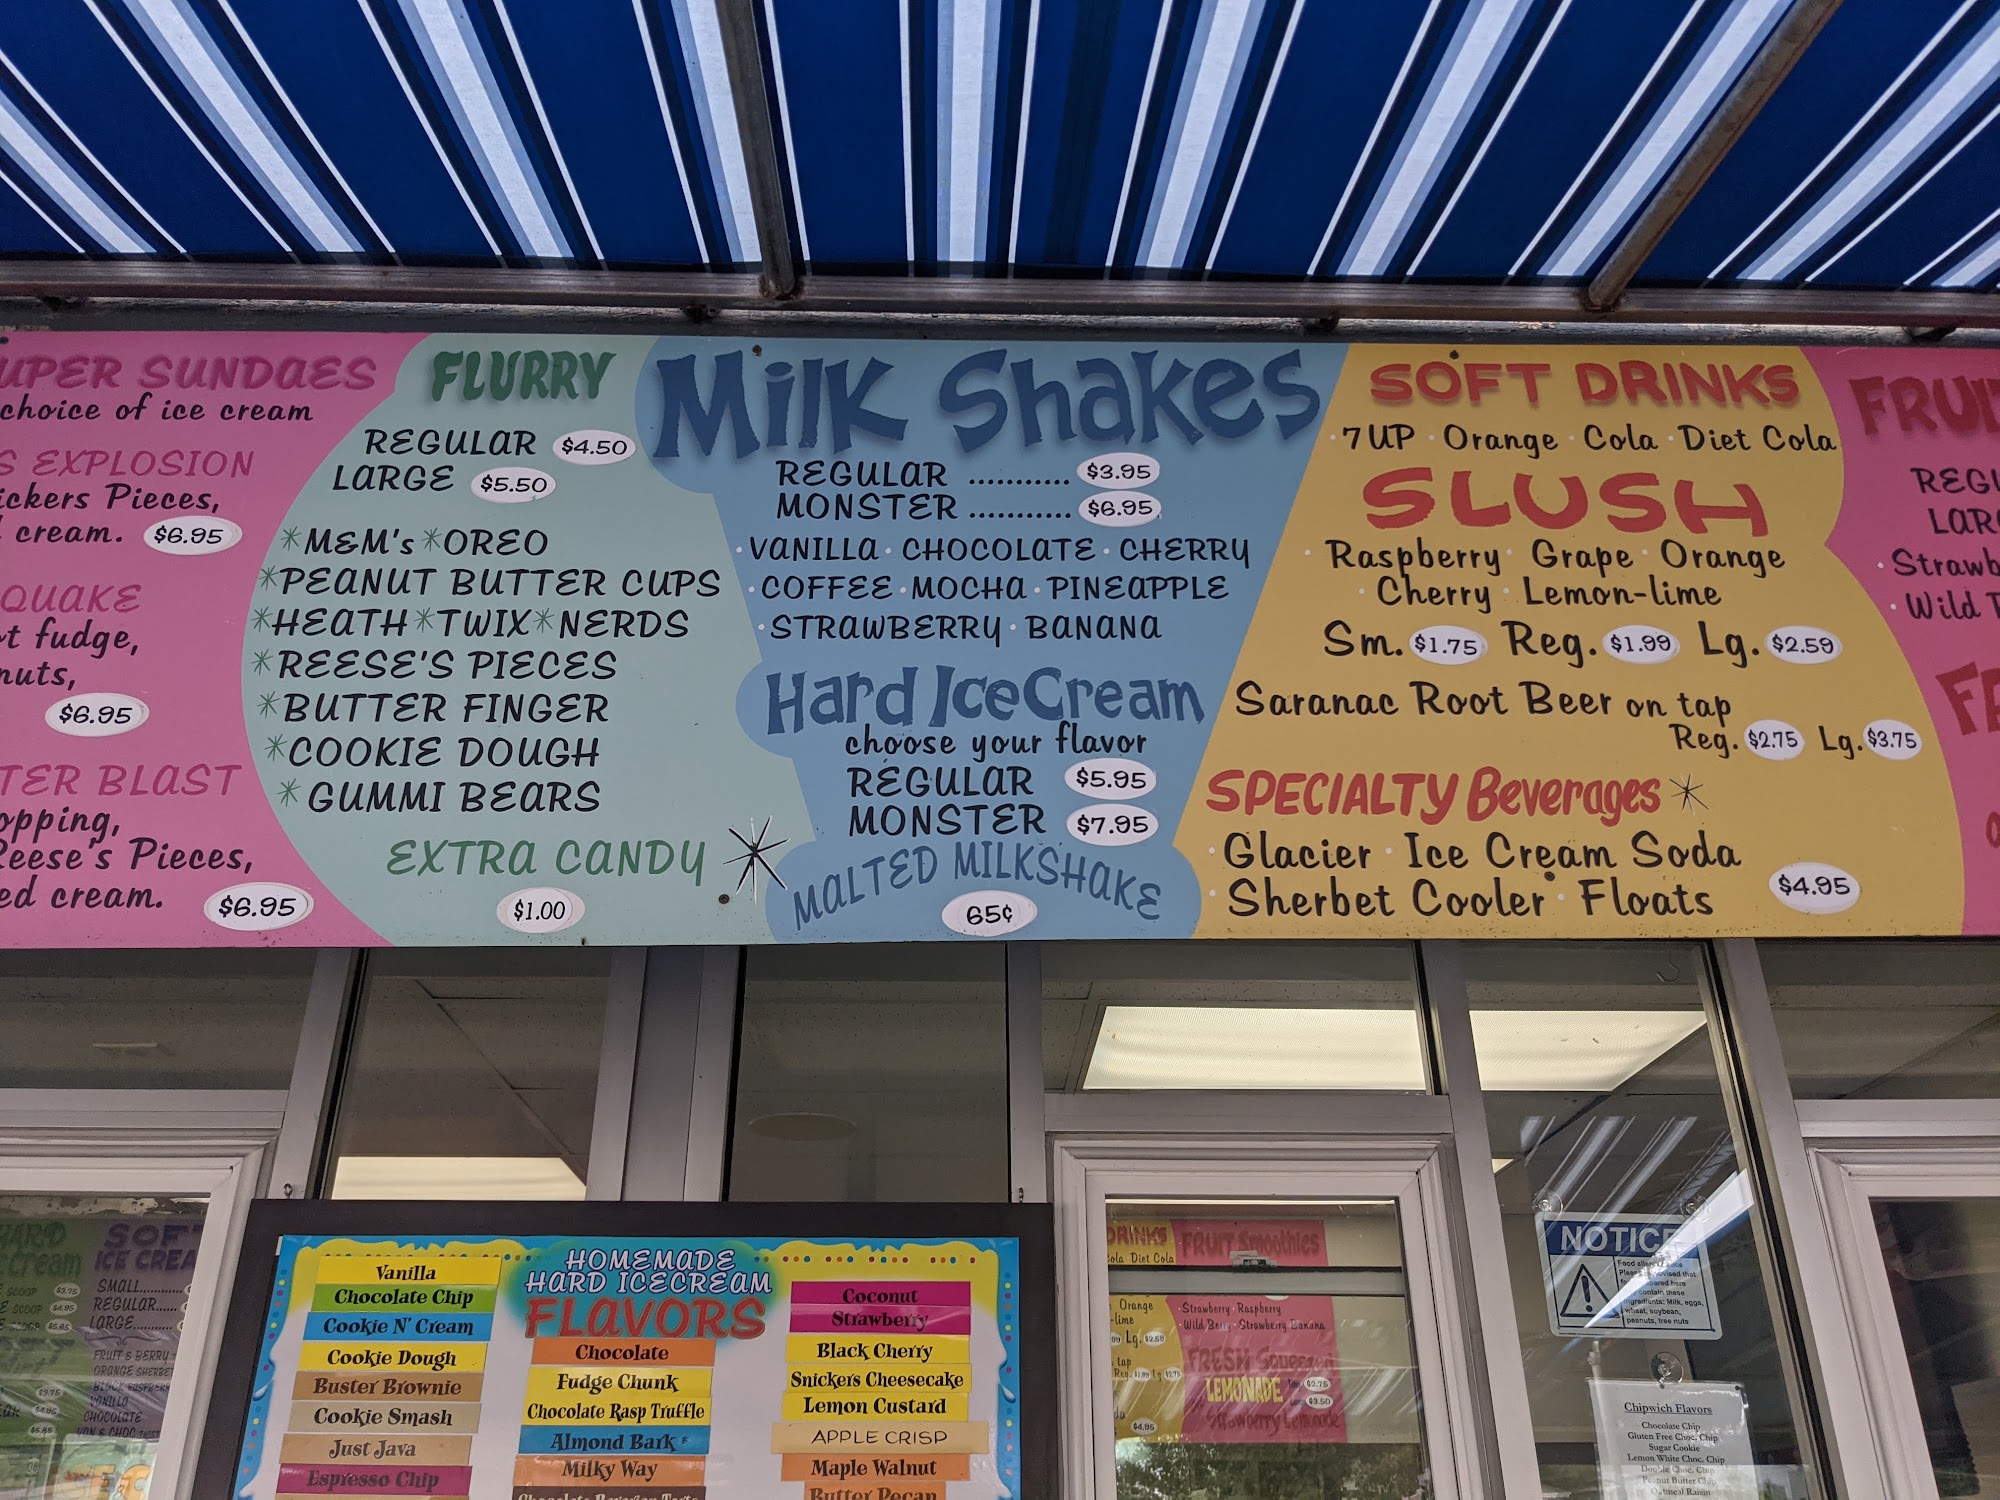 SUNDAES
choice of ice cream
EXPLOSION
Pieces,
cream. $6.95
QUAKE
fudge,
nuts,
$6.95
BLAST
Reese's Pieces,
cream.
$6.95
FLURRY
REGULAR $4.50
LARGE $5.50
*M&M's *OREO
*PEANUT BUTTER CUPS
*HEATH *TWIX *NERDS
*REESE'S PIECES
*BUTTER FINGER
*COOKIE DOUGH
*GUMMI BEARS
EXTRA CANDY
$1.00
Milk Shakes
REGULAR ........... $3.95
MONSTER ........... $6.95
· VANILLA · CHOCOLATE · CHERRY
· COFFEE · MOCHA · PINEAPPLE
· STRAWBERRY · BANANA
Hard Ice Cream
choose your flavor
REGULAR $5.95
MONSTER $7.95
MALTED MILKSHAKE
65¢
SOFT DRINKS
· 7UP · Orange · Cola · Diet Cola
SLUSH
· Raspberry · Grape · Orange
· Cherry · Lemon-lime
Sm. $1.75 Reg. $1.99 Lg. $2.59
Saranac Root Beer on tap
Reg. $2.75 Lg. $3.75
SPECIALTY Beverages *
· Glacier · Ice Cream Soda
· Sherbet Cooler · Floats
$4.95
HOMEMADE
HARD ICECREAM
FLAVORS
Vanilla
Chocolate Chip
Cookie N' Cream
Cookie Dough
Buster Brownie
Cookie Smash
Just Java
Espresso Chip
Chocolate
Fudge Chunk
Chocolate Rasp Truffle
Almond Bark *
Milky Way
Coconut
Strawberry
Black Cherry
Snickers Cheesecake
Lemon Custard
APPLE CRISP
Maple Walnut
Butter Pecan
HARD
SOFT
ICE CREAM
SMALL
REGULAR
LARGE
DRINKS
Diet Cola
FRUIT Smoothies
Orange
Lg. $2.59
· Strawberry · Raspberry
· Wild Berry · Strawberry Banana
FRESH Squeezed
LEMONADE
$2.75
$3.50
Strawberry Lemonade
$4.95
NOTICE
Chipwich Flavors
Chocolate Chip
Gluten Free Choc. Chip
Sugar Cookie
Lemon White Choc. Chip
Double Choc. Chip
Peanut Butter Chip
Oatmeal Raisin